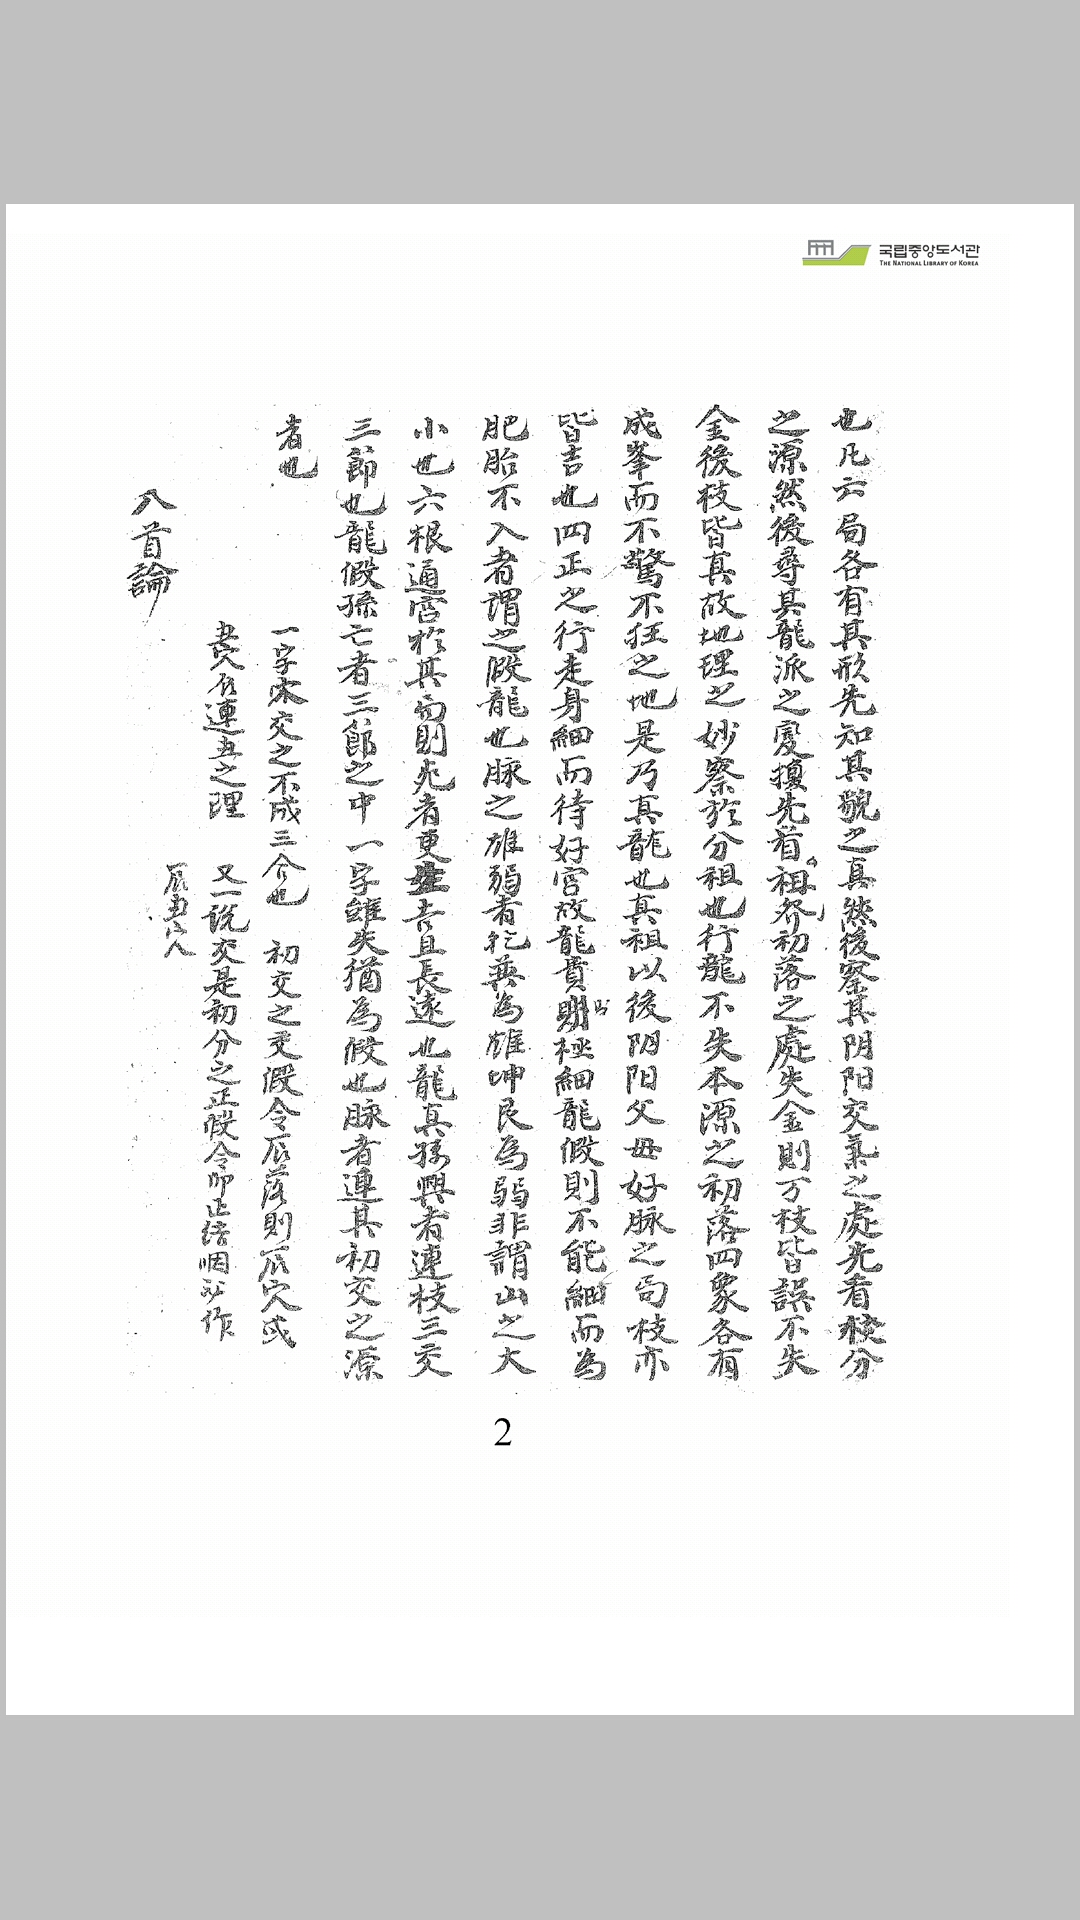 국립중앙도서관
THE NATIONAL LIBRARY OF KOREA
也凡六局各有其形先知其貌之真然後察其阴阳交氣之處先看枝分
之源然後尋其龍派之変擅先看祖分初落之處失金則万枝皆誤不失
金後枝皆真故地理之妙察於分祖也行龍不失本源之初落四象各有
成峯而不驚不狂之地是乃真龍也真祖以後阴阳父母好脉之局枝亦
皆吉也四正之行走身細而待好宮故龍貴則極細龍假則不能細而為
肥胎不入者謂之假龍也脉之雄弱者乾巽為雄坤艮為弱非謂山之大
小也六根通宮於其局則死者更生吉且長遠也龍真孫興者連枝三交
三節也龍假孫亡者三節之中一字雖失猶為假也脉者連其初交之源
者也
一字宋交之不成三介也 初交之変假令辰落則辰穴或
連丑之理 又一說交是初分之正假令
八首論
2